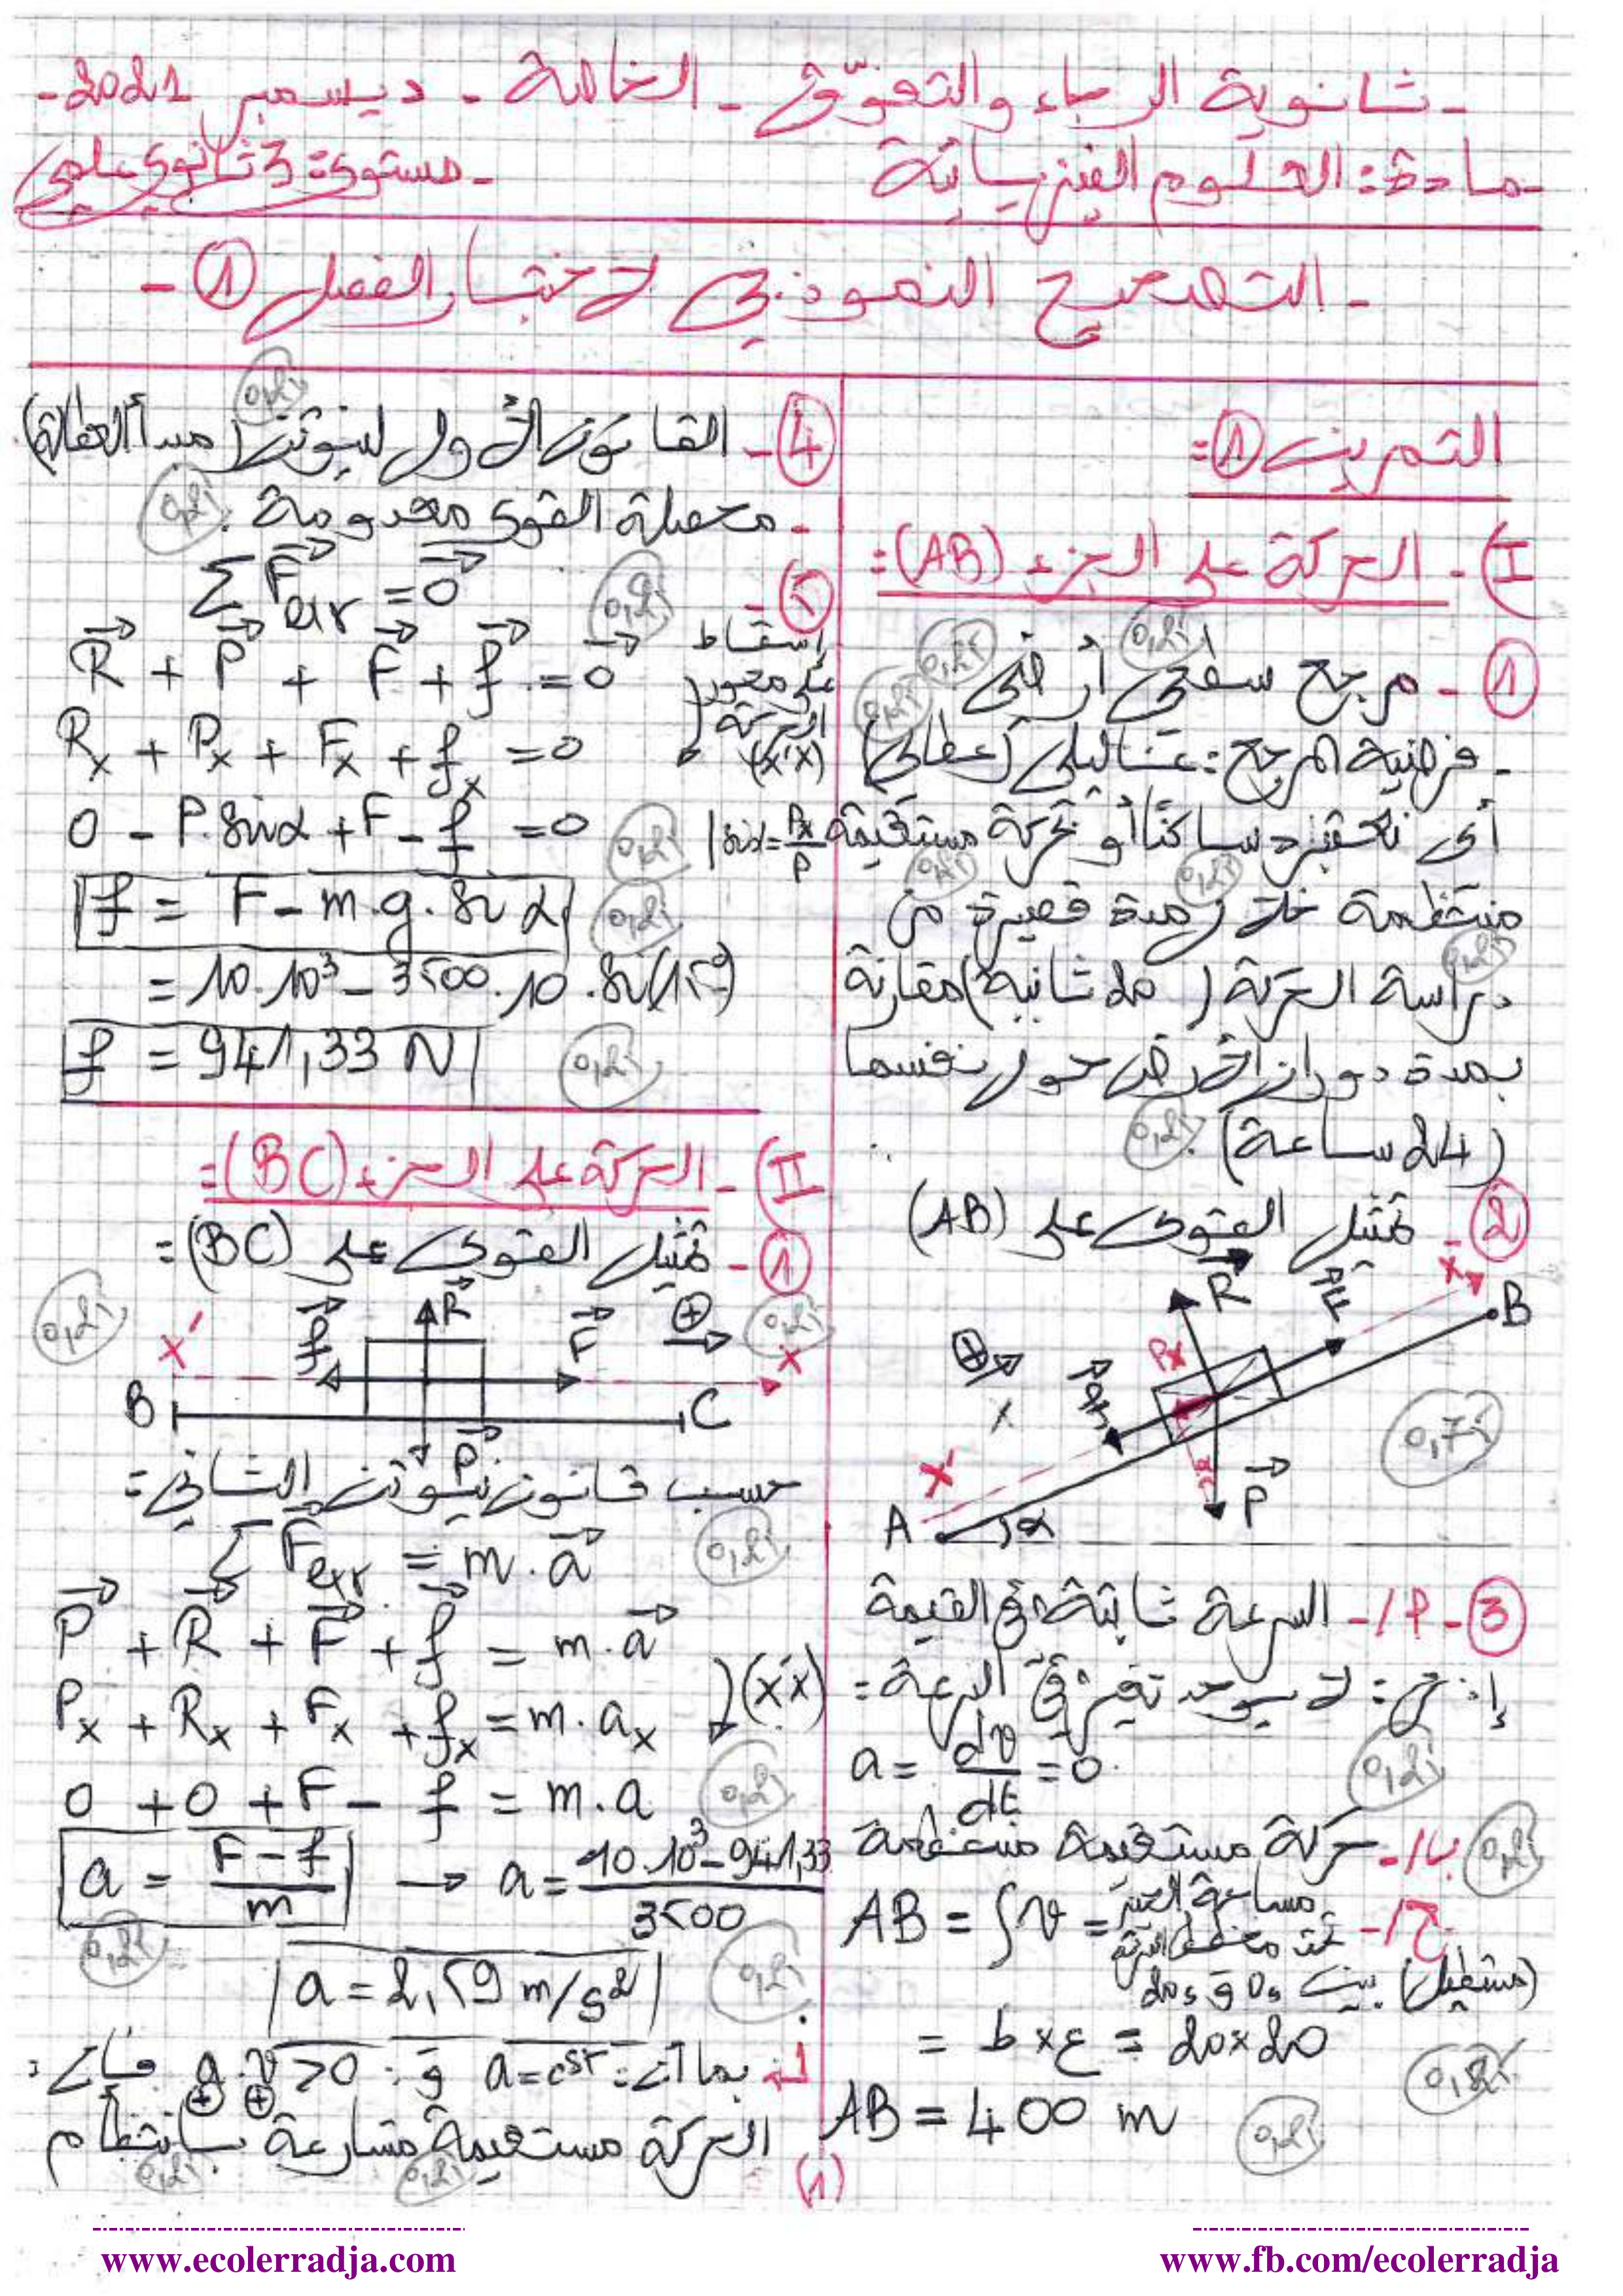 - ثانوية الرجاء والتفوّق - الخاصة - ديسمبر 2021 -
- مادة: العلوم الفيزيائية
- مستوى: 3 ثانوي علمي
- التصحيح النموذجي لاختبار الفصل ① -
التمرين ①:
I)- الحركة على الجزء (AB):
① - مرجع سطحي أرضي
0,25
0,25
- فرضية المرجع: غاليلي (عطالي)
0,25
أي نعتبره ساكنًا أو يتحرك حركة مستقيمة
0,25
0,25
منتظمة خلال مدة قصيرة من
دراسة الحركة (20 ثانية) مقارنة
0,25
بمدة دوران الأرض حول نفسها
(24 ساعة).
0,25
② - تمثيل القوى على (AB)
R
F
x
B
⊕
Px
f
x'
α
P
A
α
0,75
③ - أ/- السرعة ثابتة في القيمة
إذن: لا يوجد تغير في السرعة:
a = dv/dt = 0
0,25
ب/- حركة مستقيمة منتظمة
0,25
ج/- AB = ∫v = مساحة الحيز تحت مخطط السرعة
(مستطيل) بين 0s و 20s
= b × ع = 20×20
0,25
AB = 400 m
0,25
④ - القانون الأول لنيوتن (مبدأ العطالة)
0,25
- محصلة القوى معدومة.
0,25
⑤ - ΣF⃗ext = 0⃗
0,25
R⃗ + P⃗ + F⃗ + f⃗ = 0⃗
إسقاط على محور الحركة (x'x)
Rx + Px + Fx + fx = 0
0 - P.sinα + F - f = 0
0,25
sinα = Px/P
f = F - m.g.sinα
0,25
= 10.10³ - 3500.10.sin(15°)
f = 941,33 N
0,25
II)- الحركة على الجزء (BC):
① - تمثيل القوى على (BC):
0,25
0,25
x'
f
R
F
⊕
x
B
C
P
حسب قانون نيوتن الثاني:
ΣF⃗ext = m.a⃗
0,25
P⃗ + R⃗ + F⃗ + f⃗ = m.a⃗
Px + Rx + Fx + fx = m.ax
(x'x)
0 + 0 + F - f = m.a
0,25
a = (F - f)/m → a = (10.10³ - 941,33)/3500
0,25
a = 2,59 m/s²
0,25
بما أن: a = cst و: a.v > 0 فإن:
⊕ ⊕
الحركة مستقيمة متسارعة بانتظام
0,25
0,25
(1)
www.ecolerradja.com
www.fb.com/ecolerradja